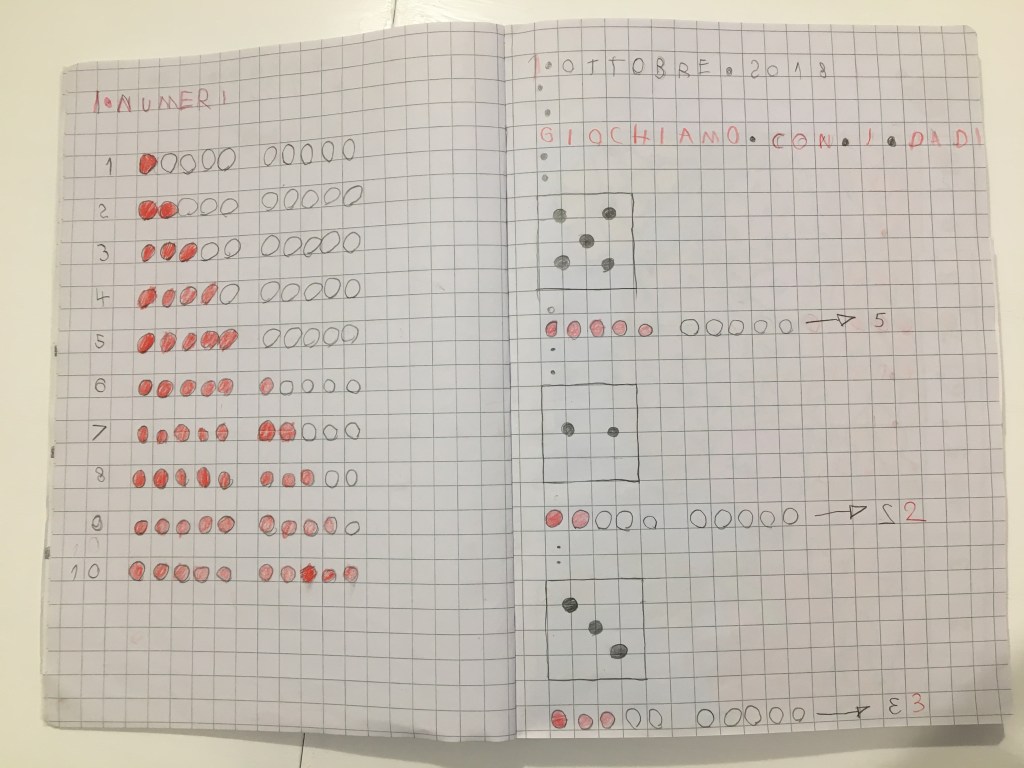 I•NUMERI
1
2
3
4
5
6
7
8
9
10
1•OTTOBRE•2018
GIOCHIAMO•CON•I•DADI
→ 5
→ 2 2
→ 3 3